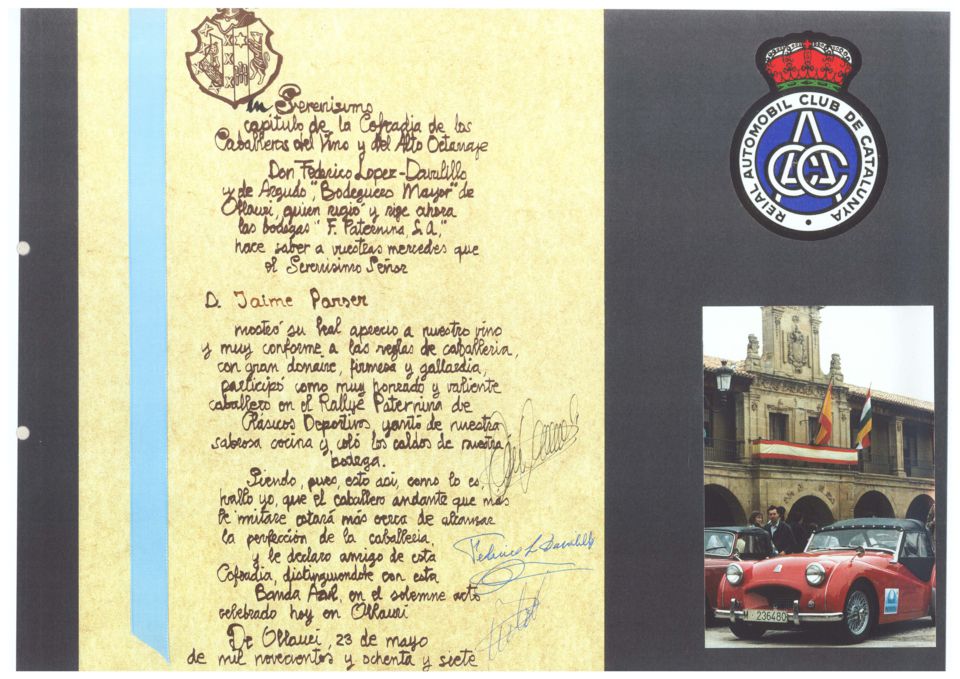 En Serenisimo
capitulo de la Cofradia de los
Caballeros del Vino y del Alto Octanaje
Don Federico Lopez-Davalillo
y de Argudo "Bodeguero Mayor" de
Ollauri, quien rigió y rige ahora
las bodegas "F. Paternina, S.A,"
hace saber a vuestras mercedes que
el Serenisimo Señor
D. Jaime Parser
mostró su leal aprecio a nuestro vino
y muy conforme a las reglas de caballeria,
con gran donaire, firmesa y gallardia,
participó como muy honrado y valiente
caballero en el Rallye Paternina de
Clásicos Deportivos yantó de nuestra
sabrosa cocina y coló los caldos de nuestra
bodega.
Siendo, pues, esto asi, como lo es,
hallo yo, que el caballero andante que más
le imitare estará más cerca de alcanzar
la perfección de la caballeria,
y le declaro amigo de esta
Cofradia, distinguiendole con esta
Banda Azul, en el solemne acto
celebrado hoy en Ollauri
De Ollauri, 23 de mayo
de mil novecientos y ochenta y siete
Federico L. Davalillo
REIAL AUTOMOBIL CLUB DE CATALUNYA
M 236480